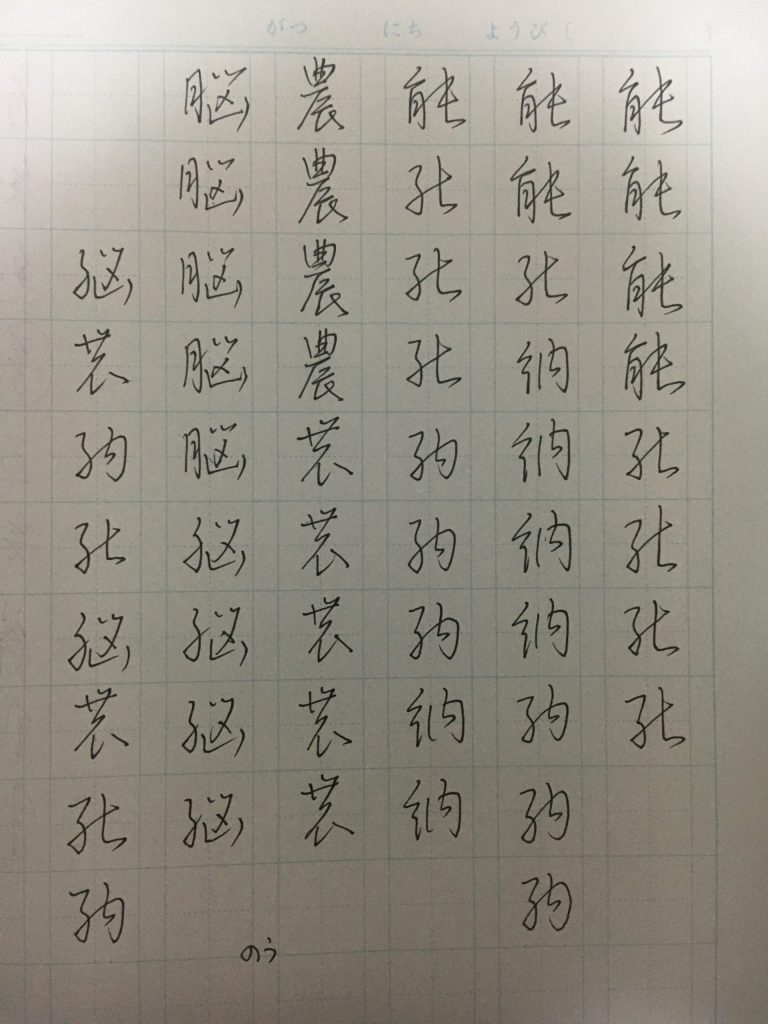 がつ にち ようび〔 〕
能能能能能能能能
能能能納納納納納納納
能能能能納納納納納
農農農農農農農農農
脳脳脳脳脳脳脳脳脳
脳農納能脳農能納
のう